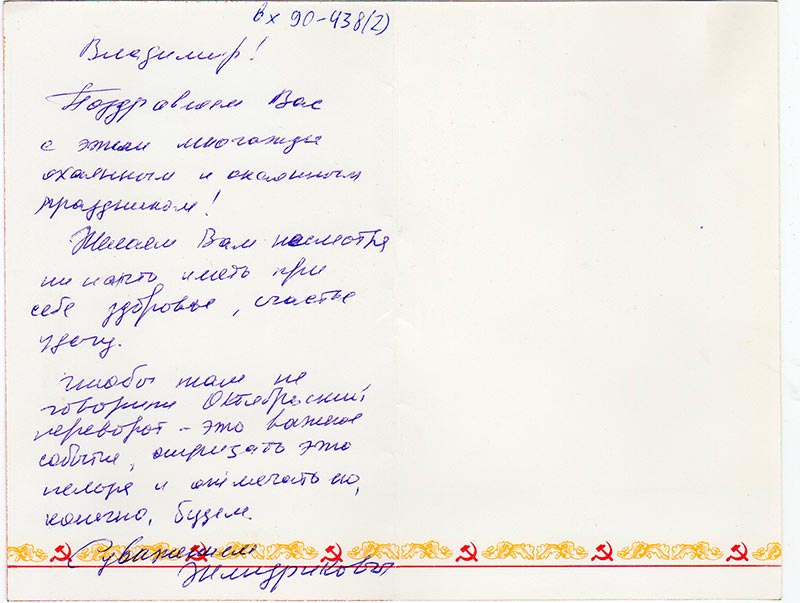 Вх 90-438(2)
Владимир!
Поздравляем Вас
с этим многажды
охаянным и окаянным
праздником!
Желаем Вам несмотря
ни на что иметь при
себе здоровье, счастье
удачу.
Чтобы там не
говорили Октябрьский
переворот - это важное
событие, отрицать это
нельзя и отмечать его,
конечно, будем.
С уважением